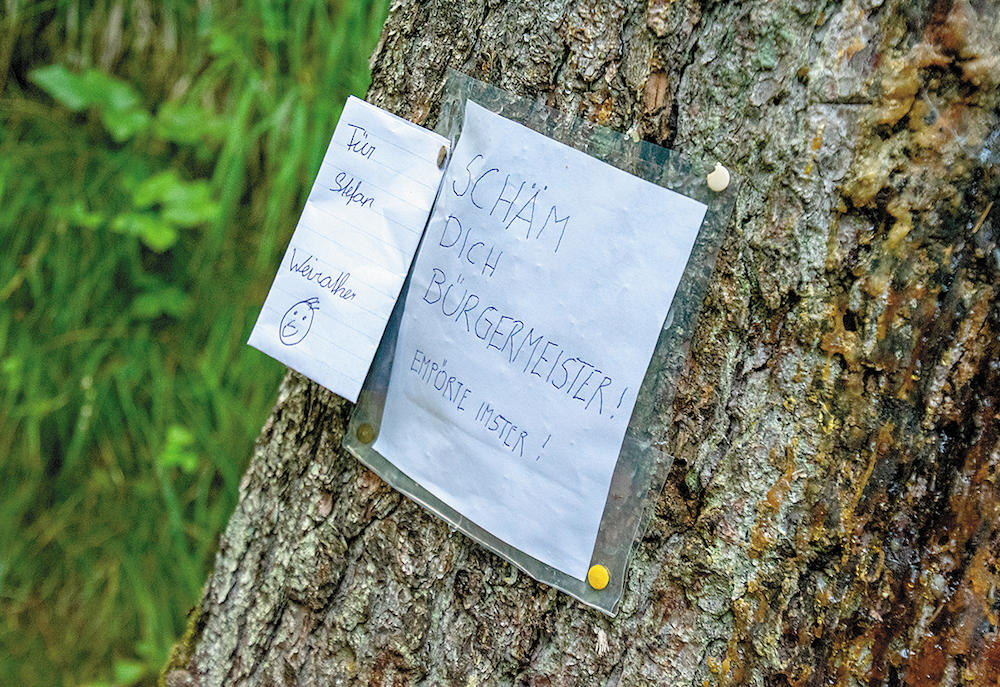 Für
Stefan
Weirather
SCHÄM
DICH
BÜRGERMEISTER!
EMPÖRTE IMSTER!